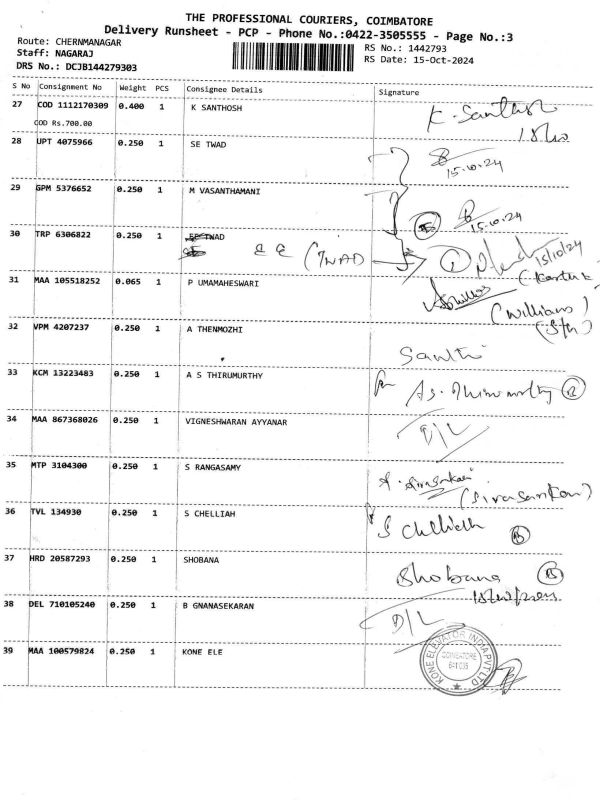 THE PROFESSIONAL COURIERS, COIMBATORE
Delivery Runsheet - PCP - Phone No.:0422-3505555 - Page No.:3
Route: CHERNMANAGAR
Staff: NAGARAJ
DRS No.: DCJB144279303
RS No.: 1442793
RS Date: 15-Oct-2024
S No Consignment No Weight PCS Consignee Details Signature
27 COD 1112170309 0.400 1 K SANTHOSH K. Santhosh
COD Rs.700.00
28 UPT 4075966 0.250 1 SE TWAD
15.10.24
29 GPM 5376652 0.250 1 M VASANTHAMANI
15.10.24
30 TRP 6306822 0.250 1 TWAD EE (TWAD 15/10/24
31 MAA 105518252 0.065 1 P UMAMAHESWARI
(Williams)
(S/n)
32 VPM 4207237 0.250 1 A THENMOZHI Santhi
33 KCM 13223483 0.250 1 A S THIRUMURTHY AS. Thirumurthy
34 MAA 867368026 0.250 1 VIGNESHWARAN AYYANAR D/L
35 MTP 3104300 0.250 1 S RANGASAMY
(Sivasankari)
36 TVL 134930 0.250 1 S CHELLIAH S Chelliah
37 HRD 20587293 0.250 1 SHOBANA Shobana
38 DEL 710105240 0.250 1 B GNANASEKARAN D/L
39 MAA 100579824 0.250 1 KONE ELE
KONE ELEVATOR INDIA PVT LTD
COIMBATORE